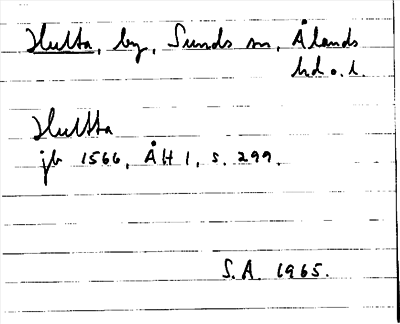 Hulta, by, Sunds sn, Ålands
hd o. l.
Hultta
jb 1566, ÅH 1, s. 299.
S.A. 1965.